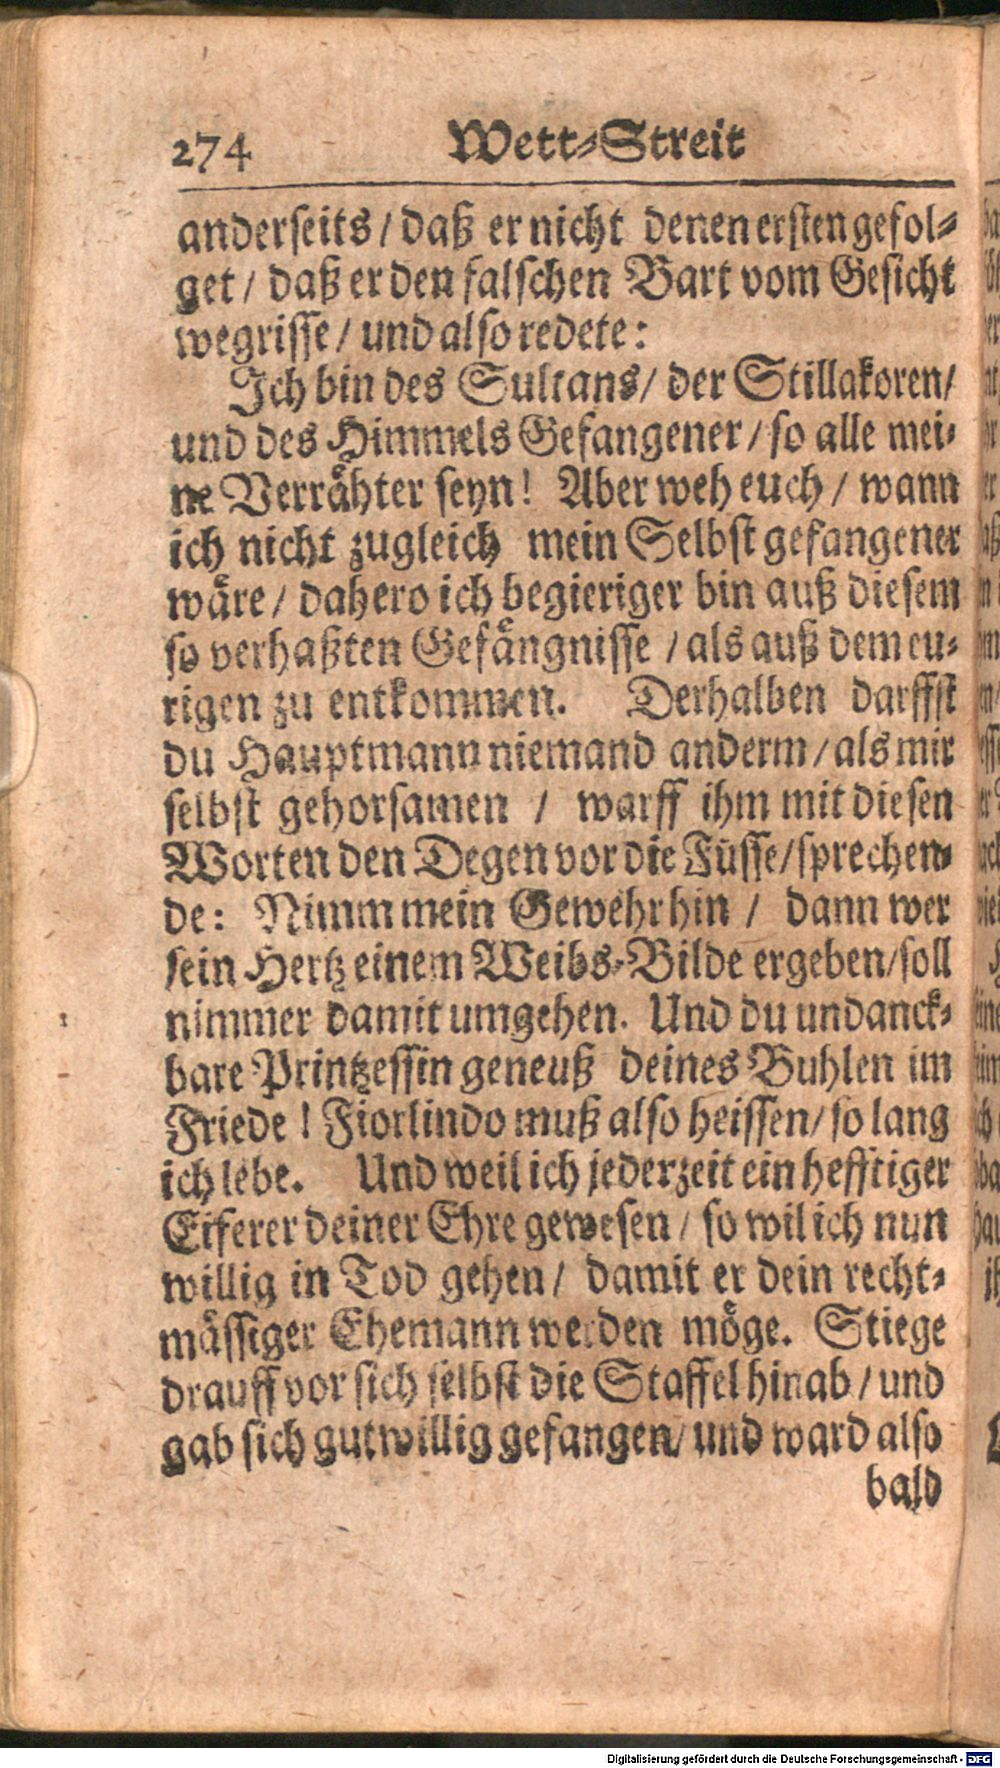 274 Wett-Streit
anderseits / daß er nicht denen ersten gefol-
get / daß er den falschen Bart vom Gesicht
wegrisse / und also redete:
Ich bin des Sultans / der Stillakoren /
und des Himmels Gefangener / so alle mei-
ne Verrähter seyn! Aber weh euch / wann
ich nicht zugleich mein Selbst gefangener
wäre / dahero ich begieriger bin auß diesem
so verhaßten Gefängnisse / als auß dem eu-
rigen zu entkommen. Derhalben darffst
du Hauptmann niemand anderm / als mir
selbst gehorsamen / warff ihm mit diesen
Worten den Degen vor die Füsse / sprechen-
de: Nimm mein Gewehr hin / dann wer
sein Hertz einem Weibs-Bilde ergeben / soll
nimmer damit umgehen. Und du undanck-
bare Printzessin geneuß deines Buhlen im
Friede! Fiorlindo muß also heissen / so lang
ich lebe. Und weil ich jederzeit ein hefftiger
Eiferer deiner Ehre gewesen / so wil ich nun
willig in Tod gehen / damit er dein recht-
mässiger Ehemann werden möge. Stiege
drauff vor sich selbst die Staffel hinab / und
gab sich gutwillig gefangen / und ward also
bald
Digitalisierung gefördert durch die Deutsche Forschungsgemeinschaft - DFG